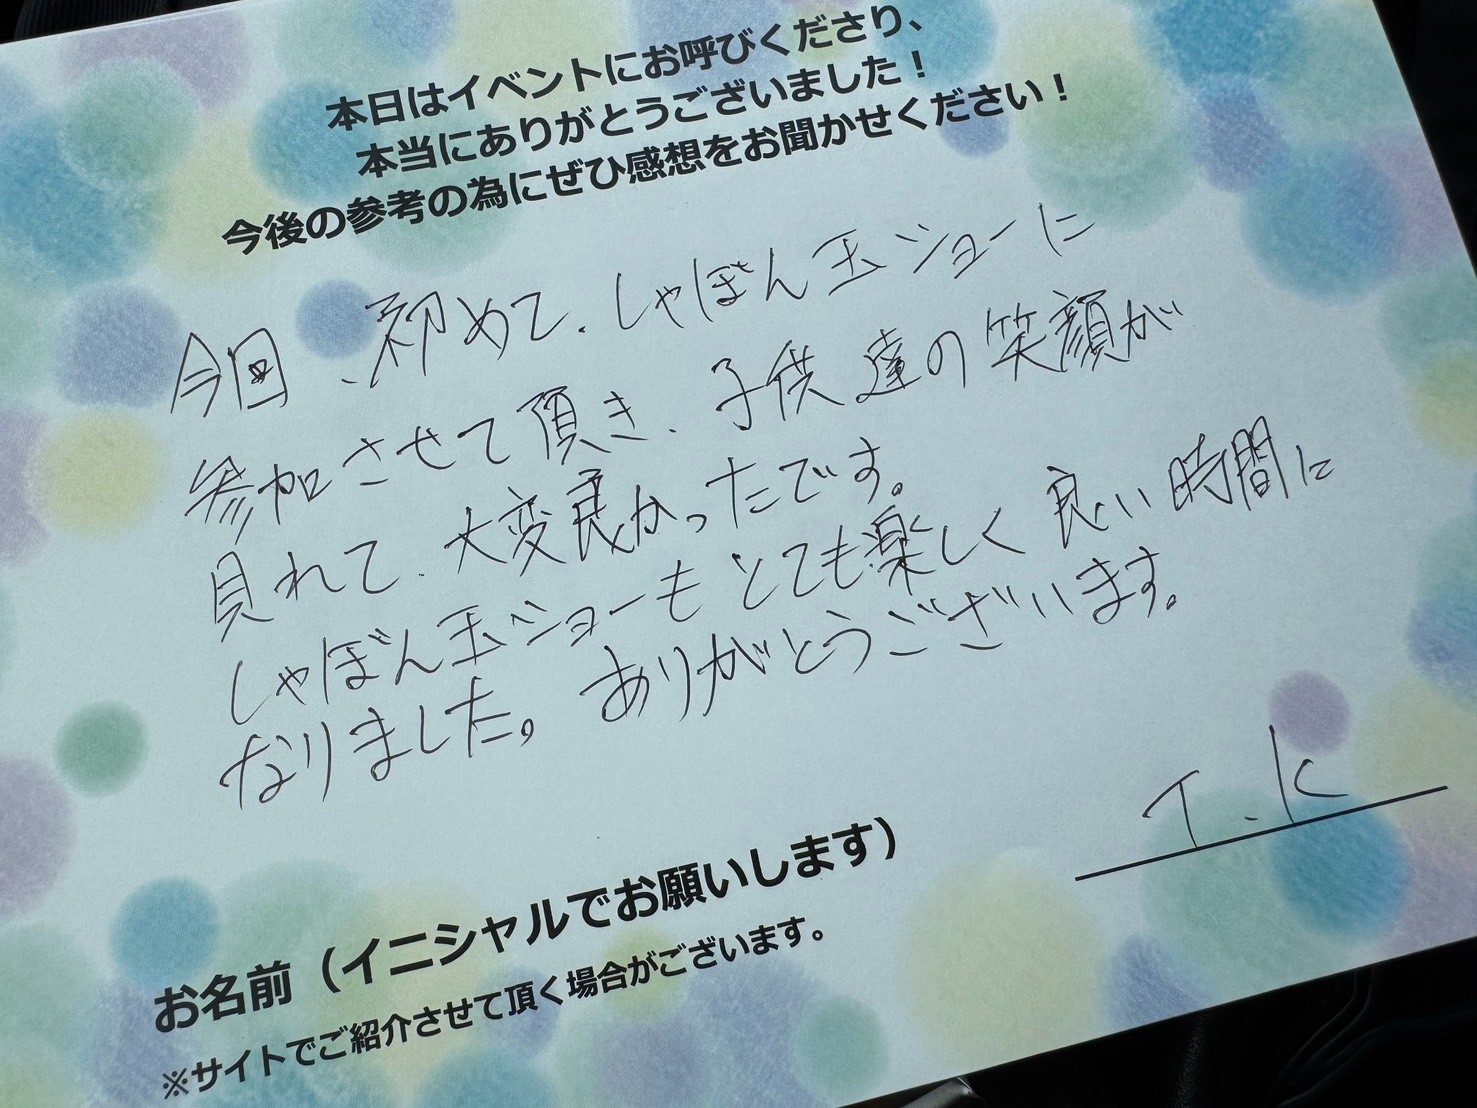 本日はイベントにお呼びくださり、
本当にありがとうございました！
今後の参考の為にぜひ感想をお聞かせください！
今回、初めて、しゃぼん玉ショーに
参加させて頂き、子供達の笑顔が
見れて、大変良かったです。
しゃぼん玉ショーもとても楽しく良い時間に
なりました。ありがとうございます。
T.K
お名前（イニシャルでお願いします）
※サイトでご紹介させて頂く場合がございます。